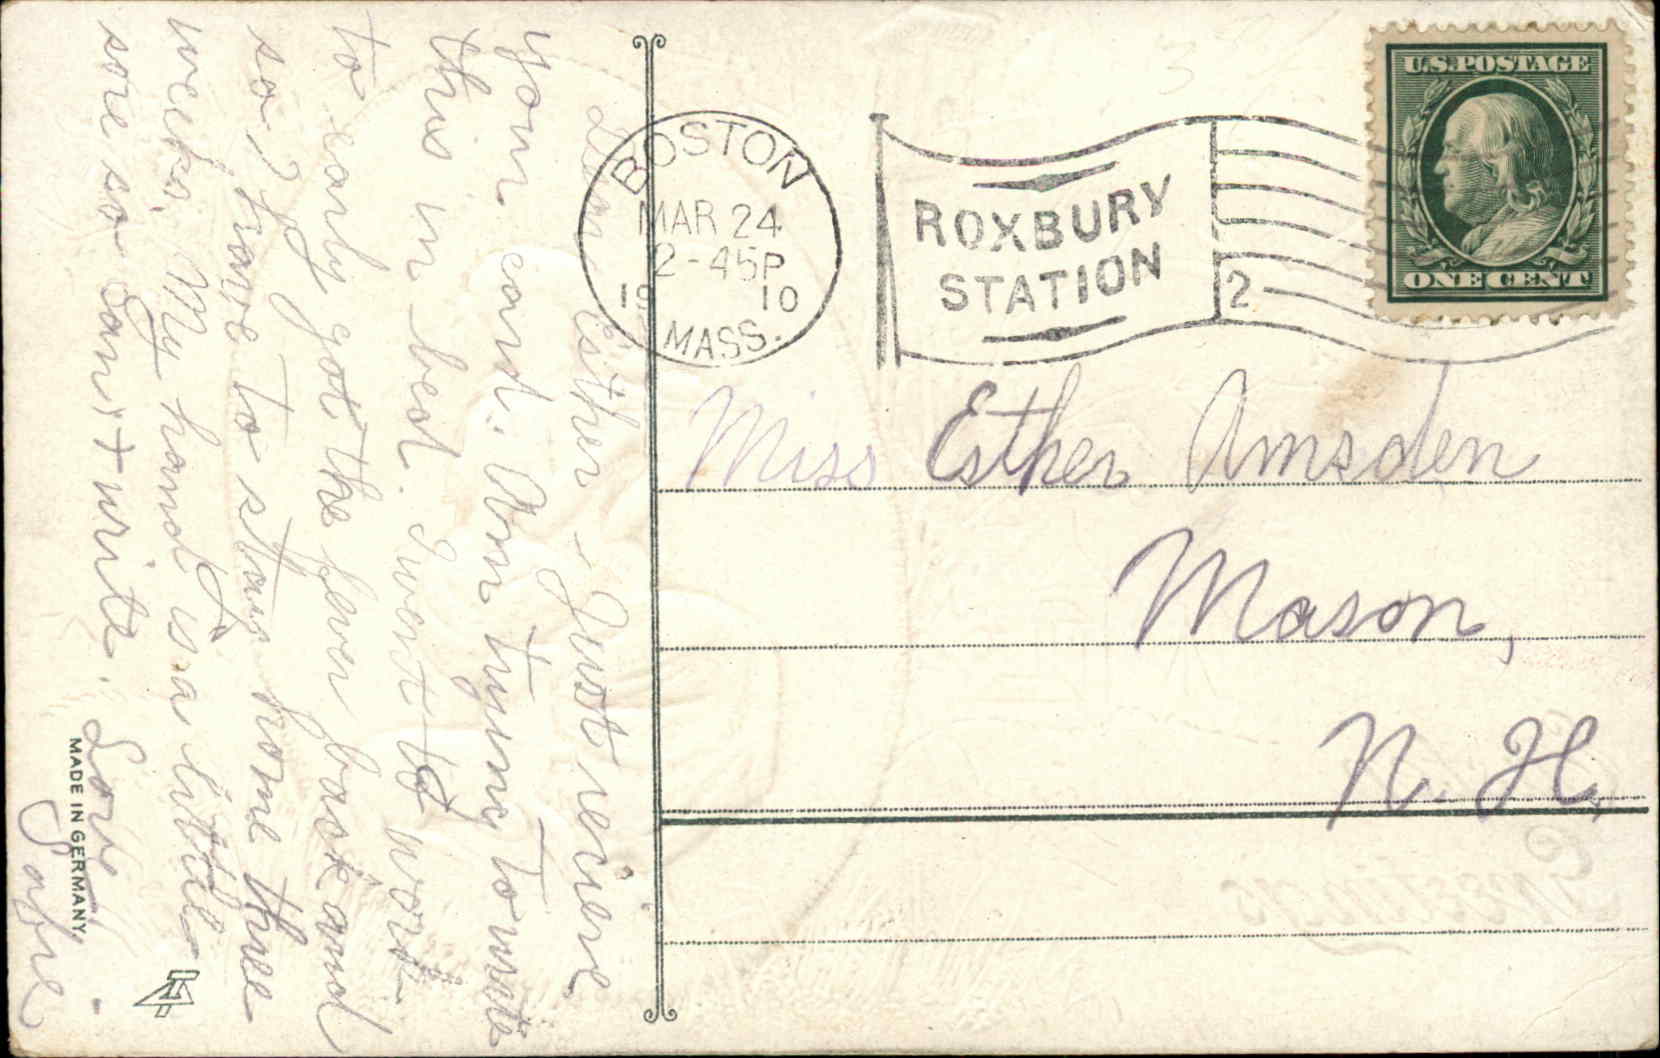 U.S. POSTAGE
ONE CENT
BOSTON
MAR 24
2-45P
19 10
MASS.
ROXBURY
STATION
2
Miss Esther Amsden
Mason,
N. H.
Dear Esther - Just recieve
your card. Am trying to write
this in bed. I went to work
to early got the fever back and
so I have to stay home three
weeks. My hand is a little
sore so Can't write. Love
Sofie
MADE IN GERMANY.